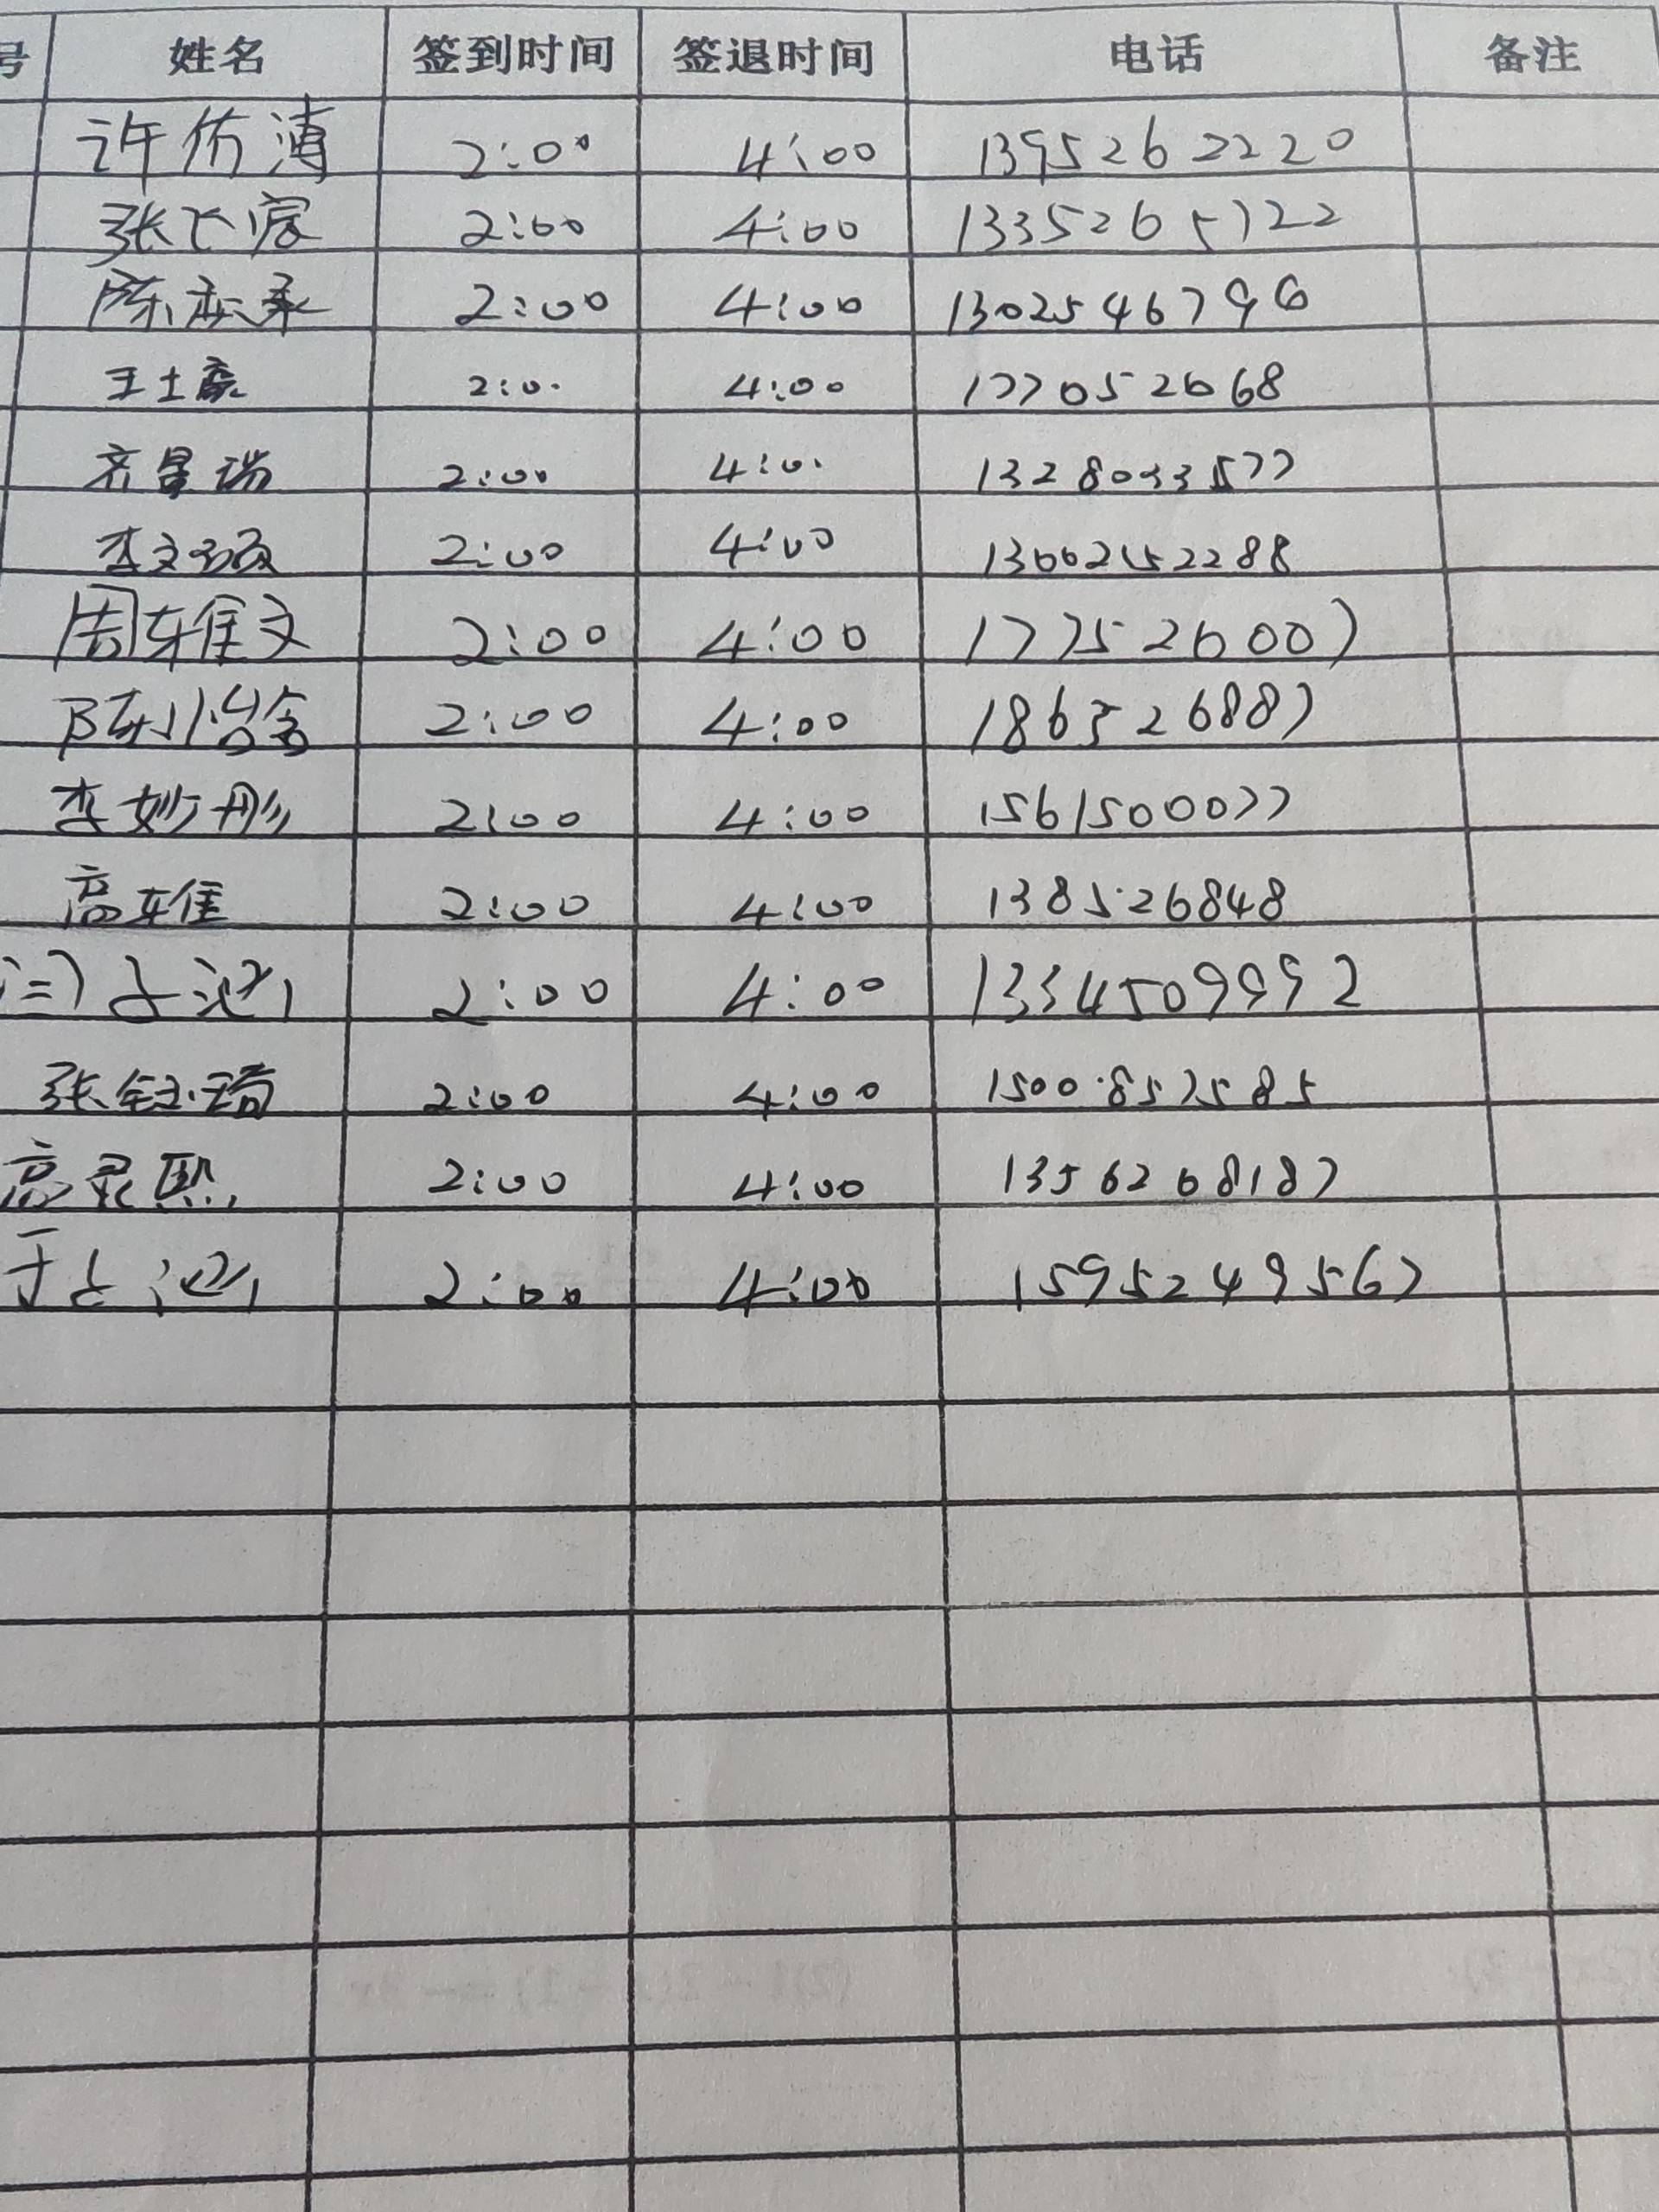 号 姓名 签到时间 签退时间 电话 备注
许 2:00 4:00 13952622220
张 2:00 4:00 13352657122
陈 2:00 4:00 13025467796
王士豪 2:0. 4:00 1770526068
齐昱瑞 2:00 4:0. 1328033577
李文 2:00 4:00 2288
周雅文 2:00 4:00 1775260007
陈怡含 2:00 4:00 186526887
李妙彤 2:00 4:00 1561500077
高雅 2:00 4:00 138526848
2:00 4:00 13345099992
张钰琦 2:00 4:00 1500857585
高 熙 2:00 4:00 1356268187
于 2:00 4:00 1595249567